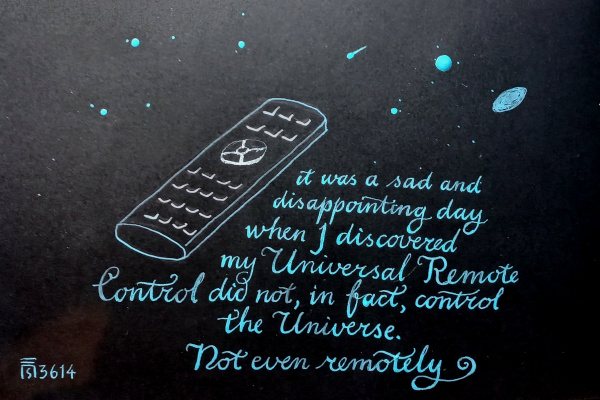 it was a sad and
disappointing day
when I discovered
my Universal Remote
Control did not, in fact, control
the Universe.
Not even remotely
3614